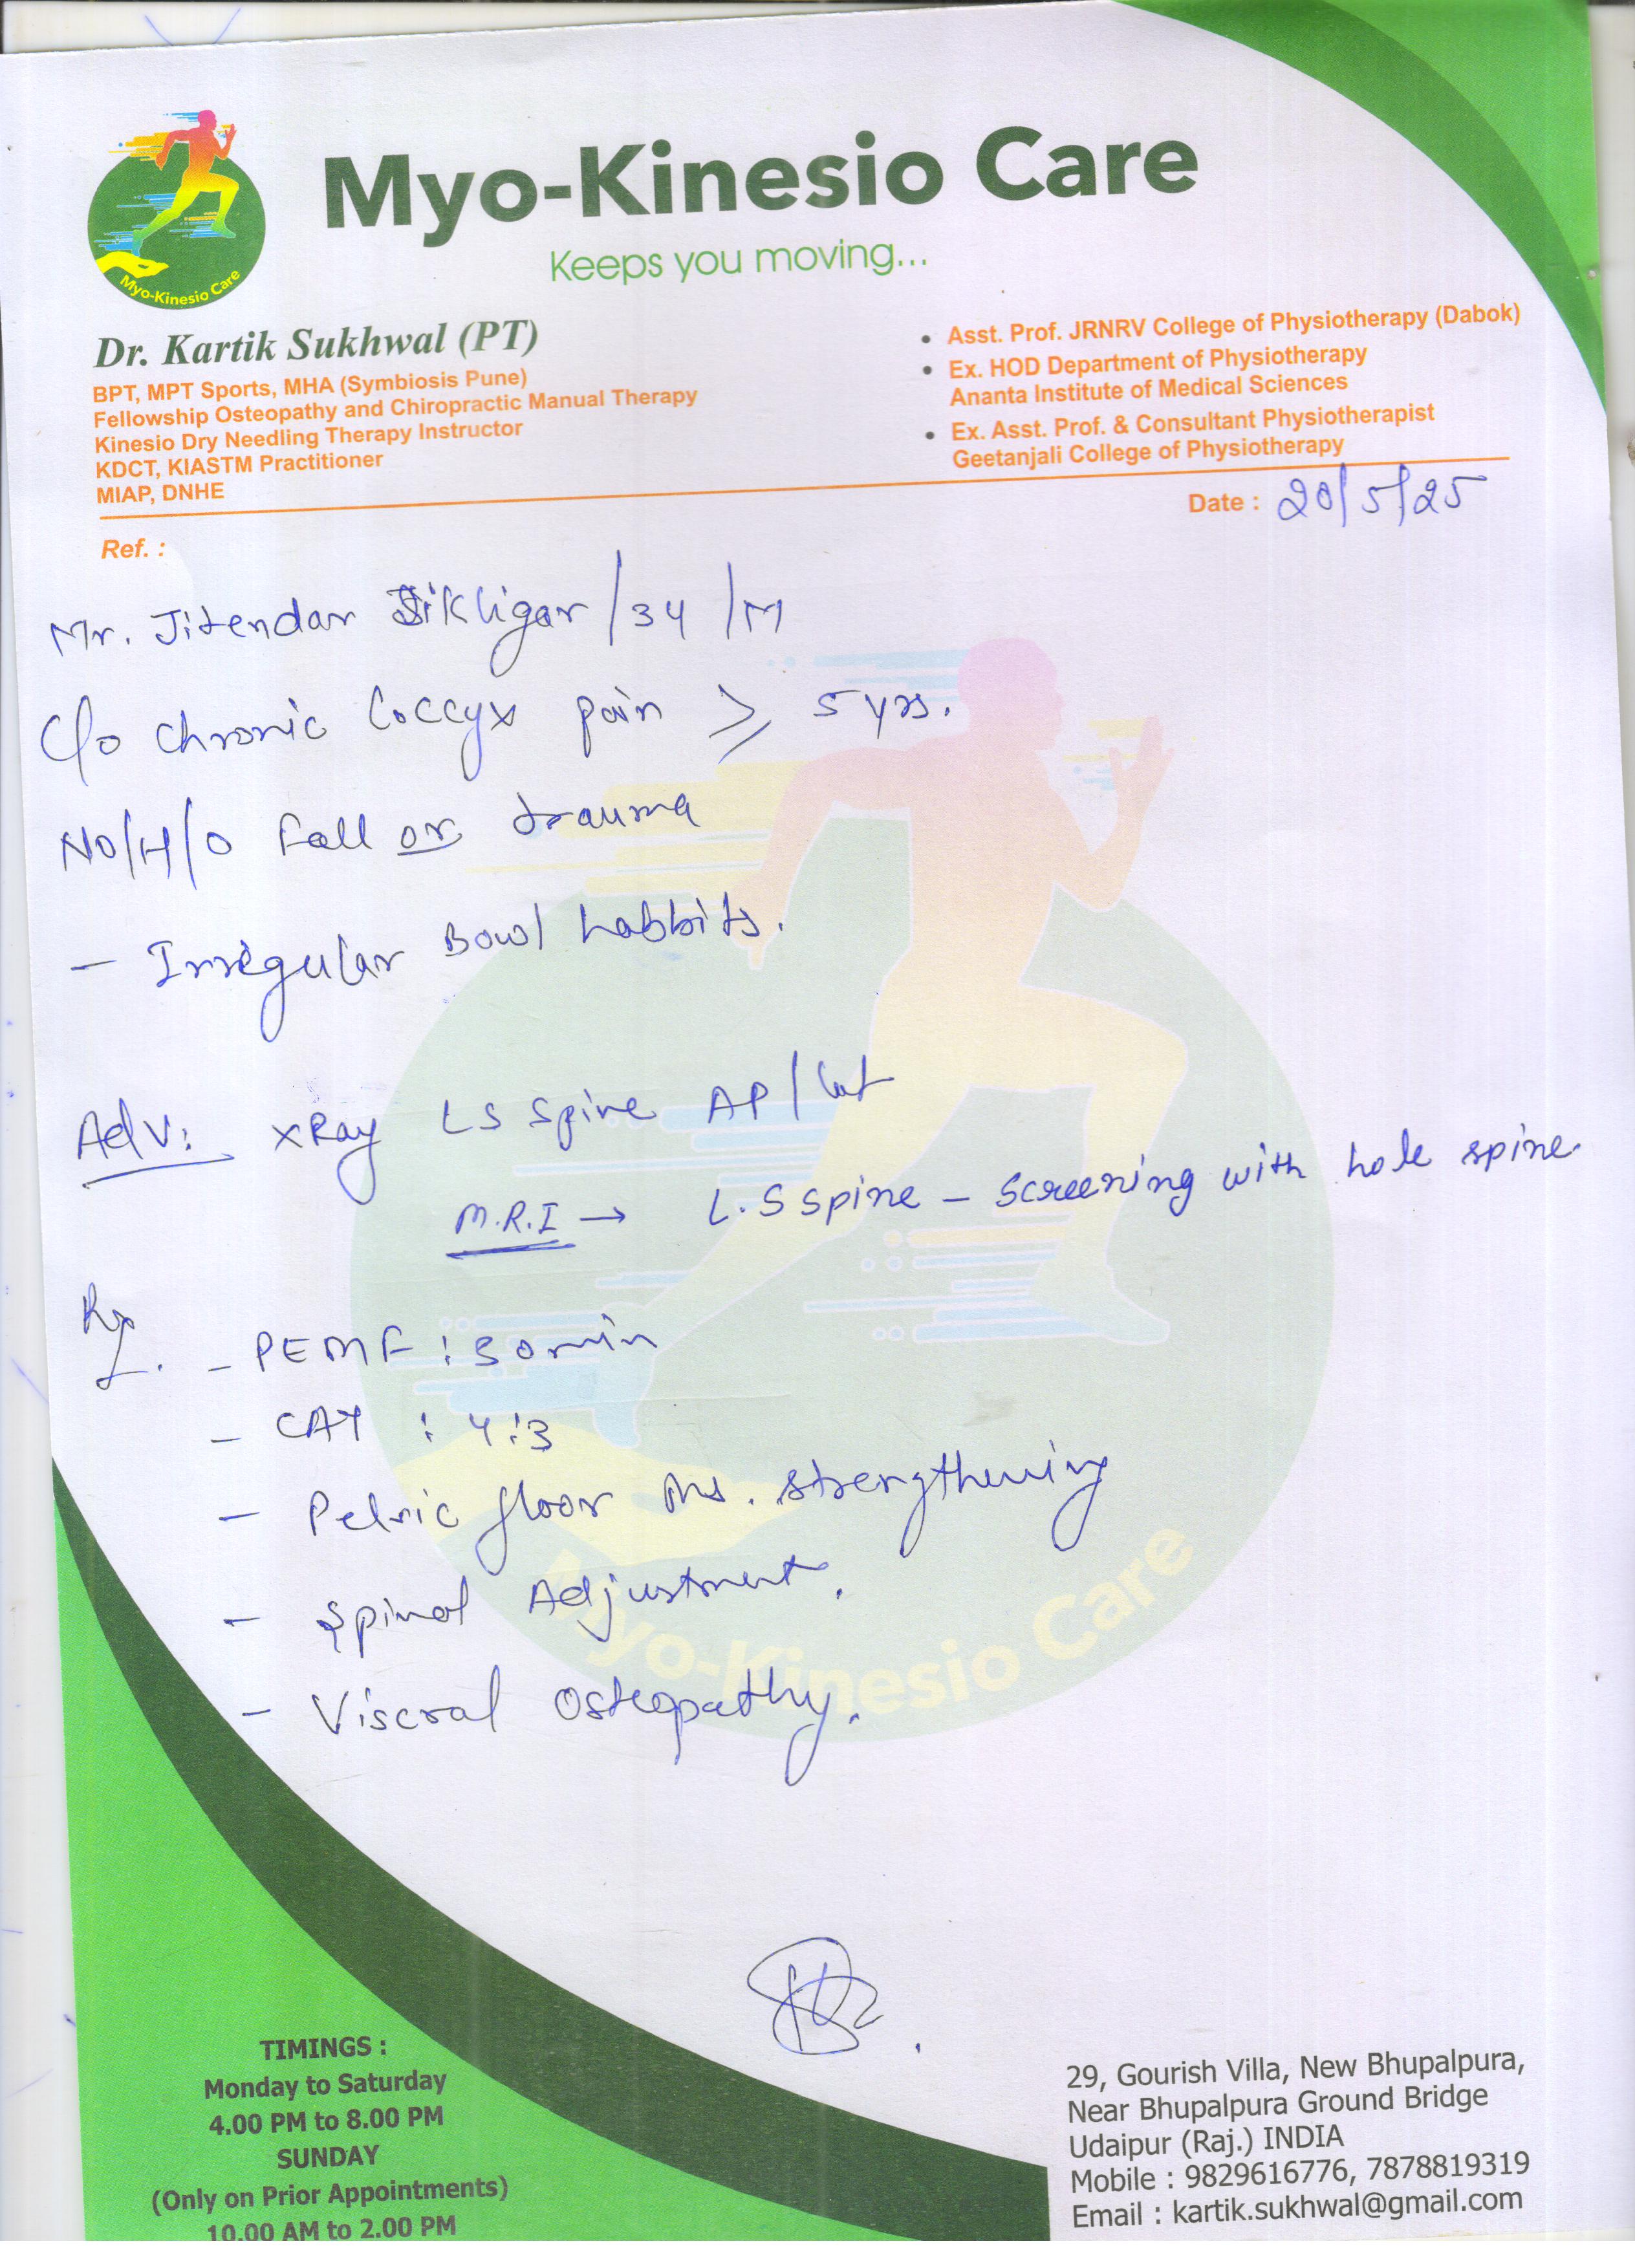 Myo-Kinesio Care
Keeps you moving...
Myo-Kinesio Care
Dr. Kartik Sukhwal (PT)
BPT, MPT Sports, MHA (Symbiosis Pune)
Fellowship Osteopathy and Chiropractic Manual Therapy
Kinesio Dry Needling Therapy Instructor
KDCT, KIASTM Practitioner
MIAP, DNHE
• Asst. Prof. JRNRV College of Physiotherapy (Dabok)
• Ex. HOD Department of Physiotherapy
Ananta Institute of Medical Sciences
• Ex. Asst. Prof. & Consultant Physiotherapist
Geetanjali College of Physiotherapy
Date : 20/5/25
Ref. :
Mr. Jitendar Sikligar /34 /M
C/o chronic Coccyx pain ≥ 5 yrs.
NO/H/O fall or trauma
- Irregular Bowl habbits.
Adv: XRay LS Spine AP/Lat
M.R.I → L.S spine - screening with hole spine.
Rx
- PEMF : 30 min
- CAY : 4:3
- Pelvic floor Ms. strengthening
- Spinal Adjustment.
- Viscral Osteopathy.
Myo-Kinesio Care
TIMINGS :
Monday to Saturday
4.00 PM to 8.00 PM
SUNDAY
(Only on Prior Appointments)
10.00 AM to 2.00 PM
29, Gourish Villa, New Bhupalpura,
Near Bhupalpura Ground Bridge
Udaipur (Raj.) INDIA
Mobile : 9829616776, 7878819319
Email : kartik.sukhwal@gmail.com